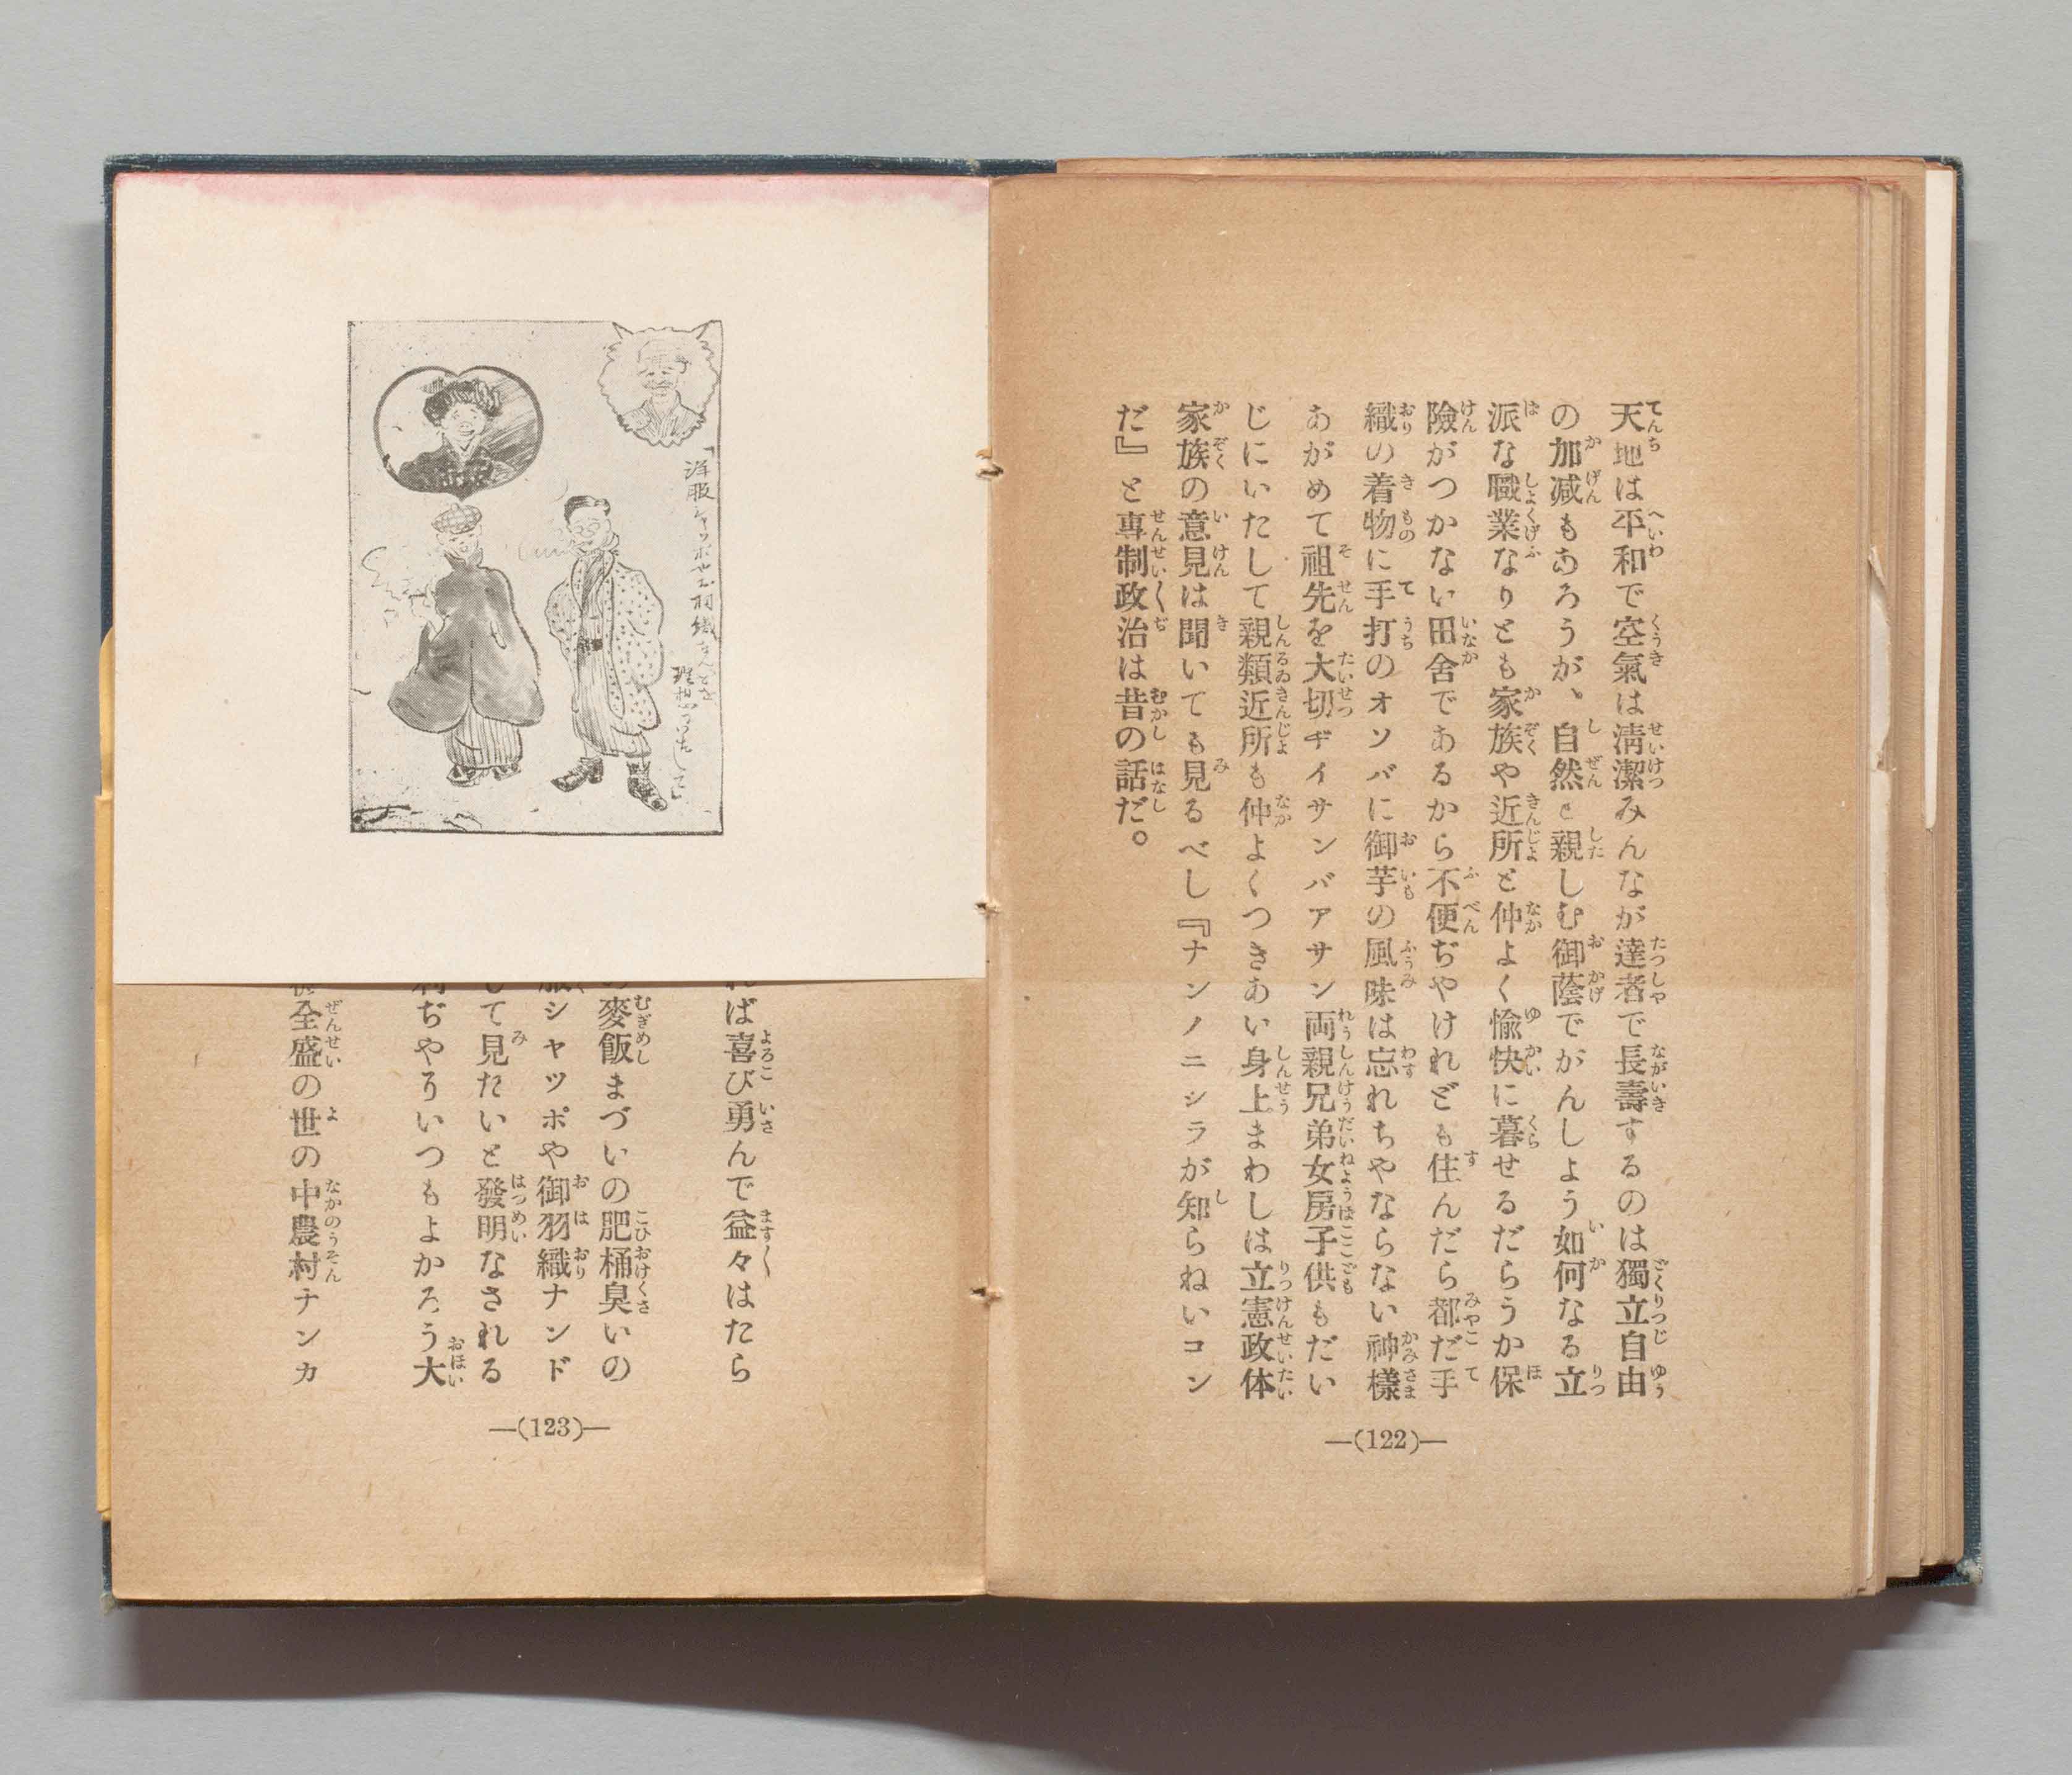 天地は平和で空氣は淸潔みんなが達者で長壽するのは獨立自由
の加减もあろうが、自然と親しむ御蔭でがんしよう如何なる立
派な職業なりとも家族や近所と仲よく愉快に暮せるだらうか保
險がつかない田舍であるから不便ぢやけれども住んだら都だ手
織の着物に手打のオソバに御芋の風味は忘れちやならない神樣
あがめて祖先を大切ヂイサンバアサン両親兄弟女房子供もだい
じにいたして親類近所も仲よくつきあい身上まわしは立憲政体
家族の意見は聞いても見るべし『ナンノニシラが知らねいコン
だ』と專制政治は昔の話だ。
―(122)―
「洋服シャッポやお羽織なんどを
理想つけたして」
れば喜び勇んで益々はたら
麥飯まづいの肥桶臭いの
服シヤツポや御羽織ナンド
して見たいと發明なされる
ぢやろいつもよかろう大
全盛の世の中農村ナンカ
―(123)―